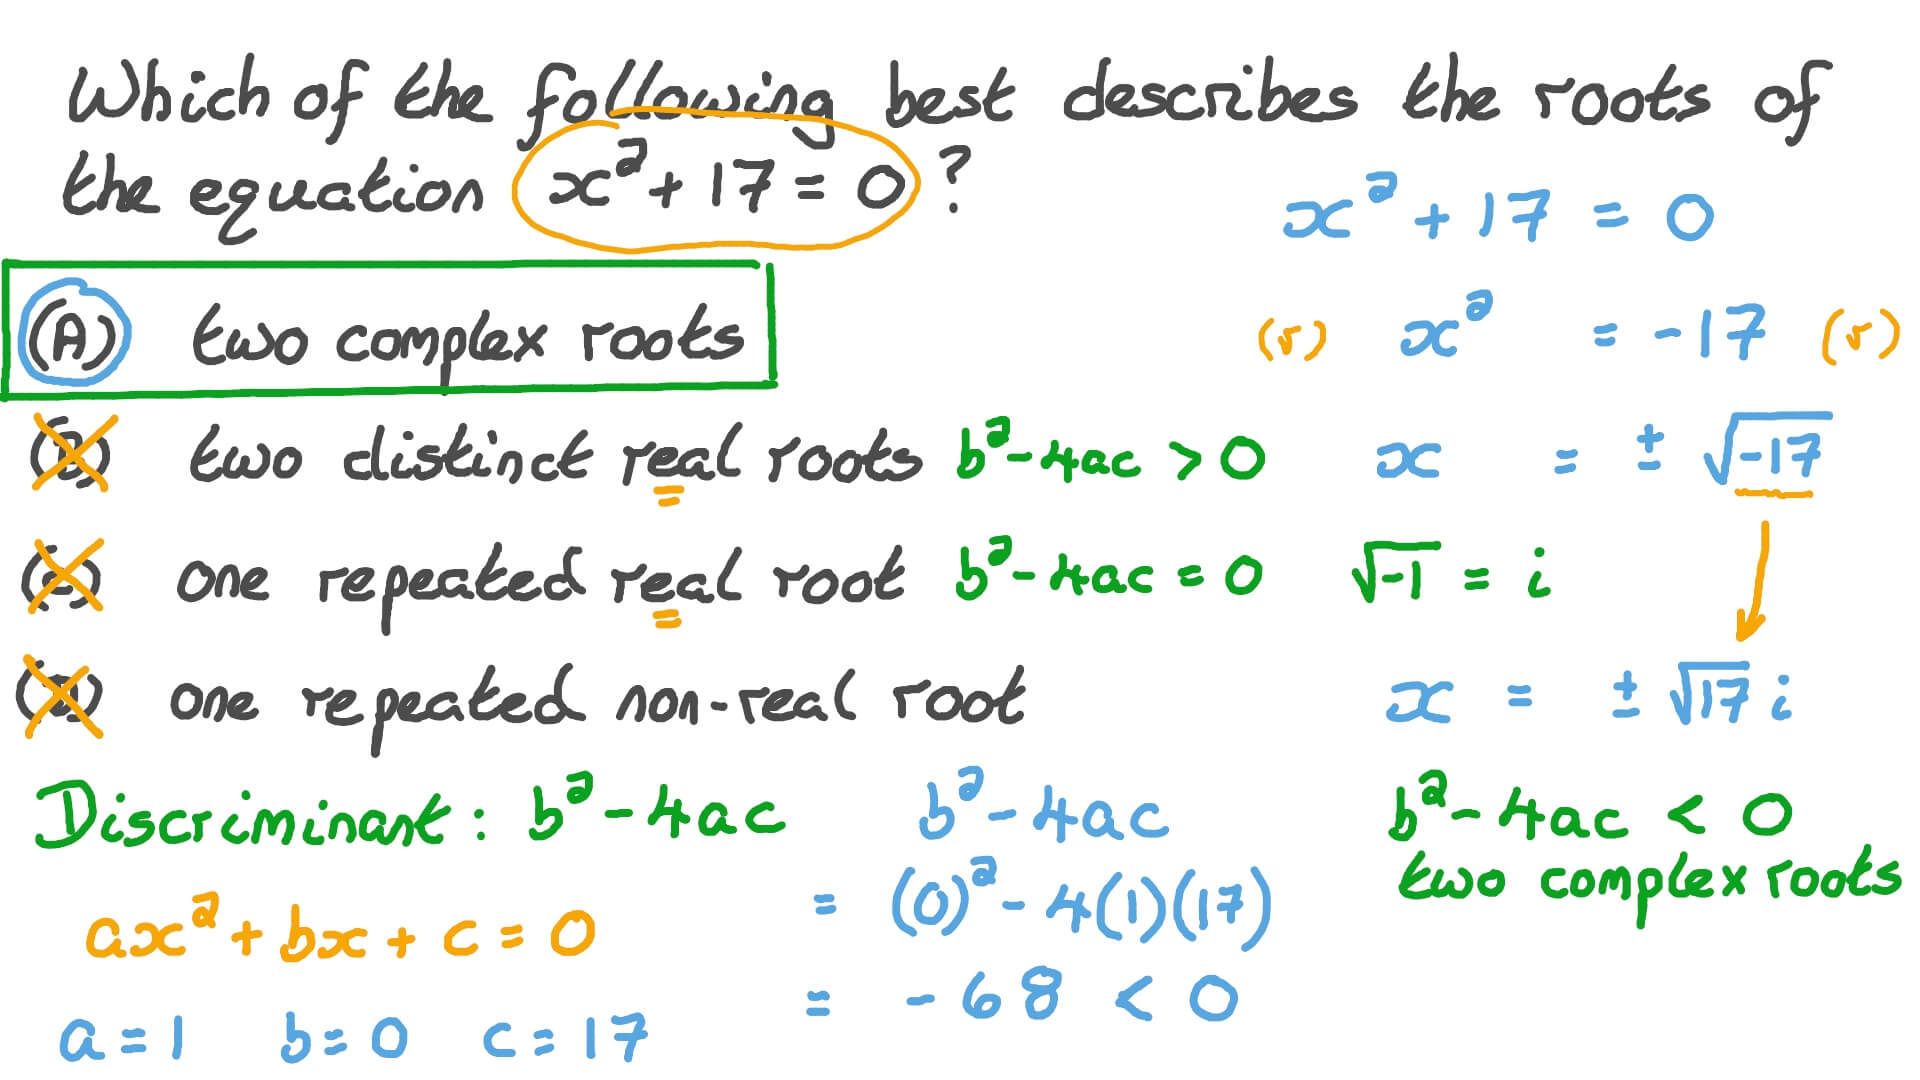 Which of the following best describes the roots of
the equation x² + 17 = 0 ?
(A) two complex roots
(B) two distinct real roots b² - 4ac > 0
(C) one repeated real root b² - 4ac = 0
(D) one repeated non-real root
x² + 17 = 0
(√) x² = -17 (√)
x = ± √-17
√-1 = i
x = ± √17 i
Discriminant : b² - 4ac
ax² + bx + c = 0
a = 1 b = 0 c = 17
b² - 4ac
= (0)² - 4(1)(17)
= - 68 < 0
b² - 4ac < 0
two complex roots